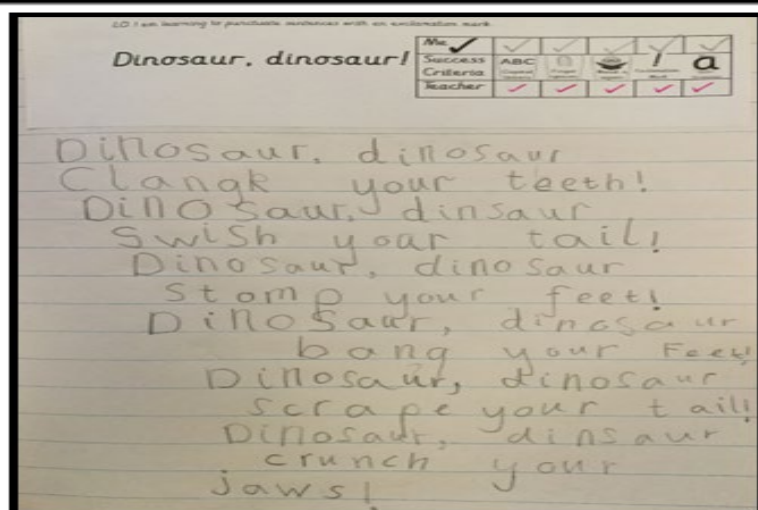 LO I am learning to punctuate sentences with an exclamation mark.
Dinosaur, dinosaur!
Me
Success Criteria
ABC
!
a
Teacher
Dinosaur, dinosaur
Clangk your teeth!
Dinosaur, dinsaur
Swish your tail!
Dinosaur, dinosaur
Stomp your feet!
Dinosaur, dinosaur
bang your Feet!
Dinosaur, dinosaur
scrape your tail!
Dinosaur, dinsaur
crunch your
jaws!